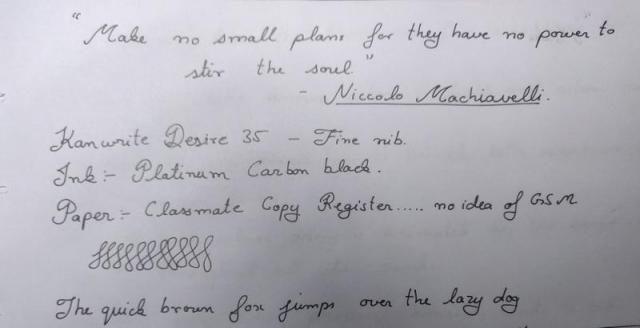 “Make no small plans for they have no power” to
stir the soul”
- Niccolo Machiavelli.
Kanwrite Desire 35 - Fine nib.
Ink:- Platinum Carbon black.
Paper:- Classmate Copy Register..... no idea of GSM
The quick brown fox jumps over the lazy dog